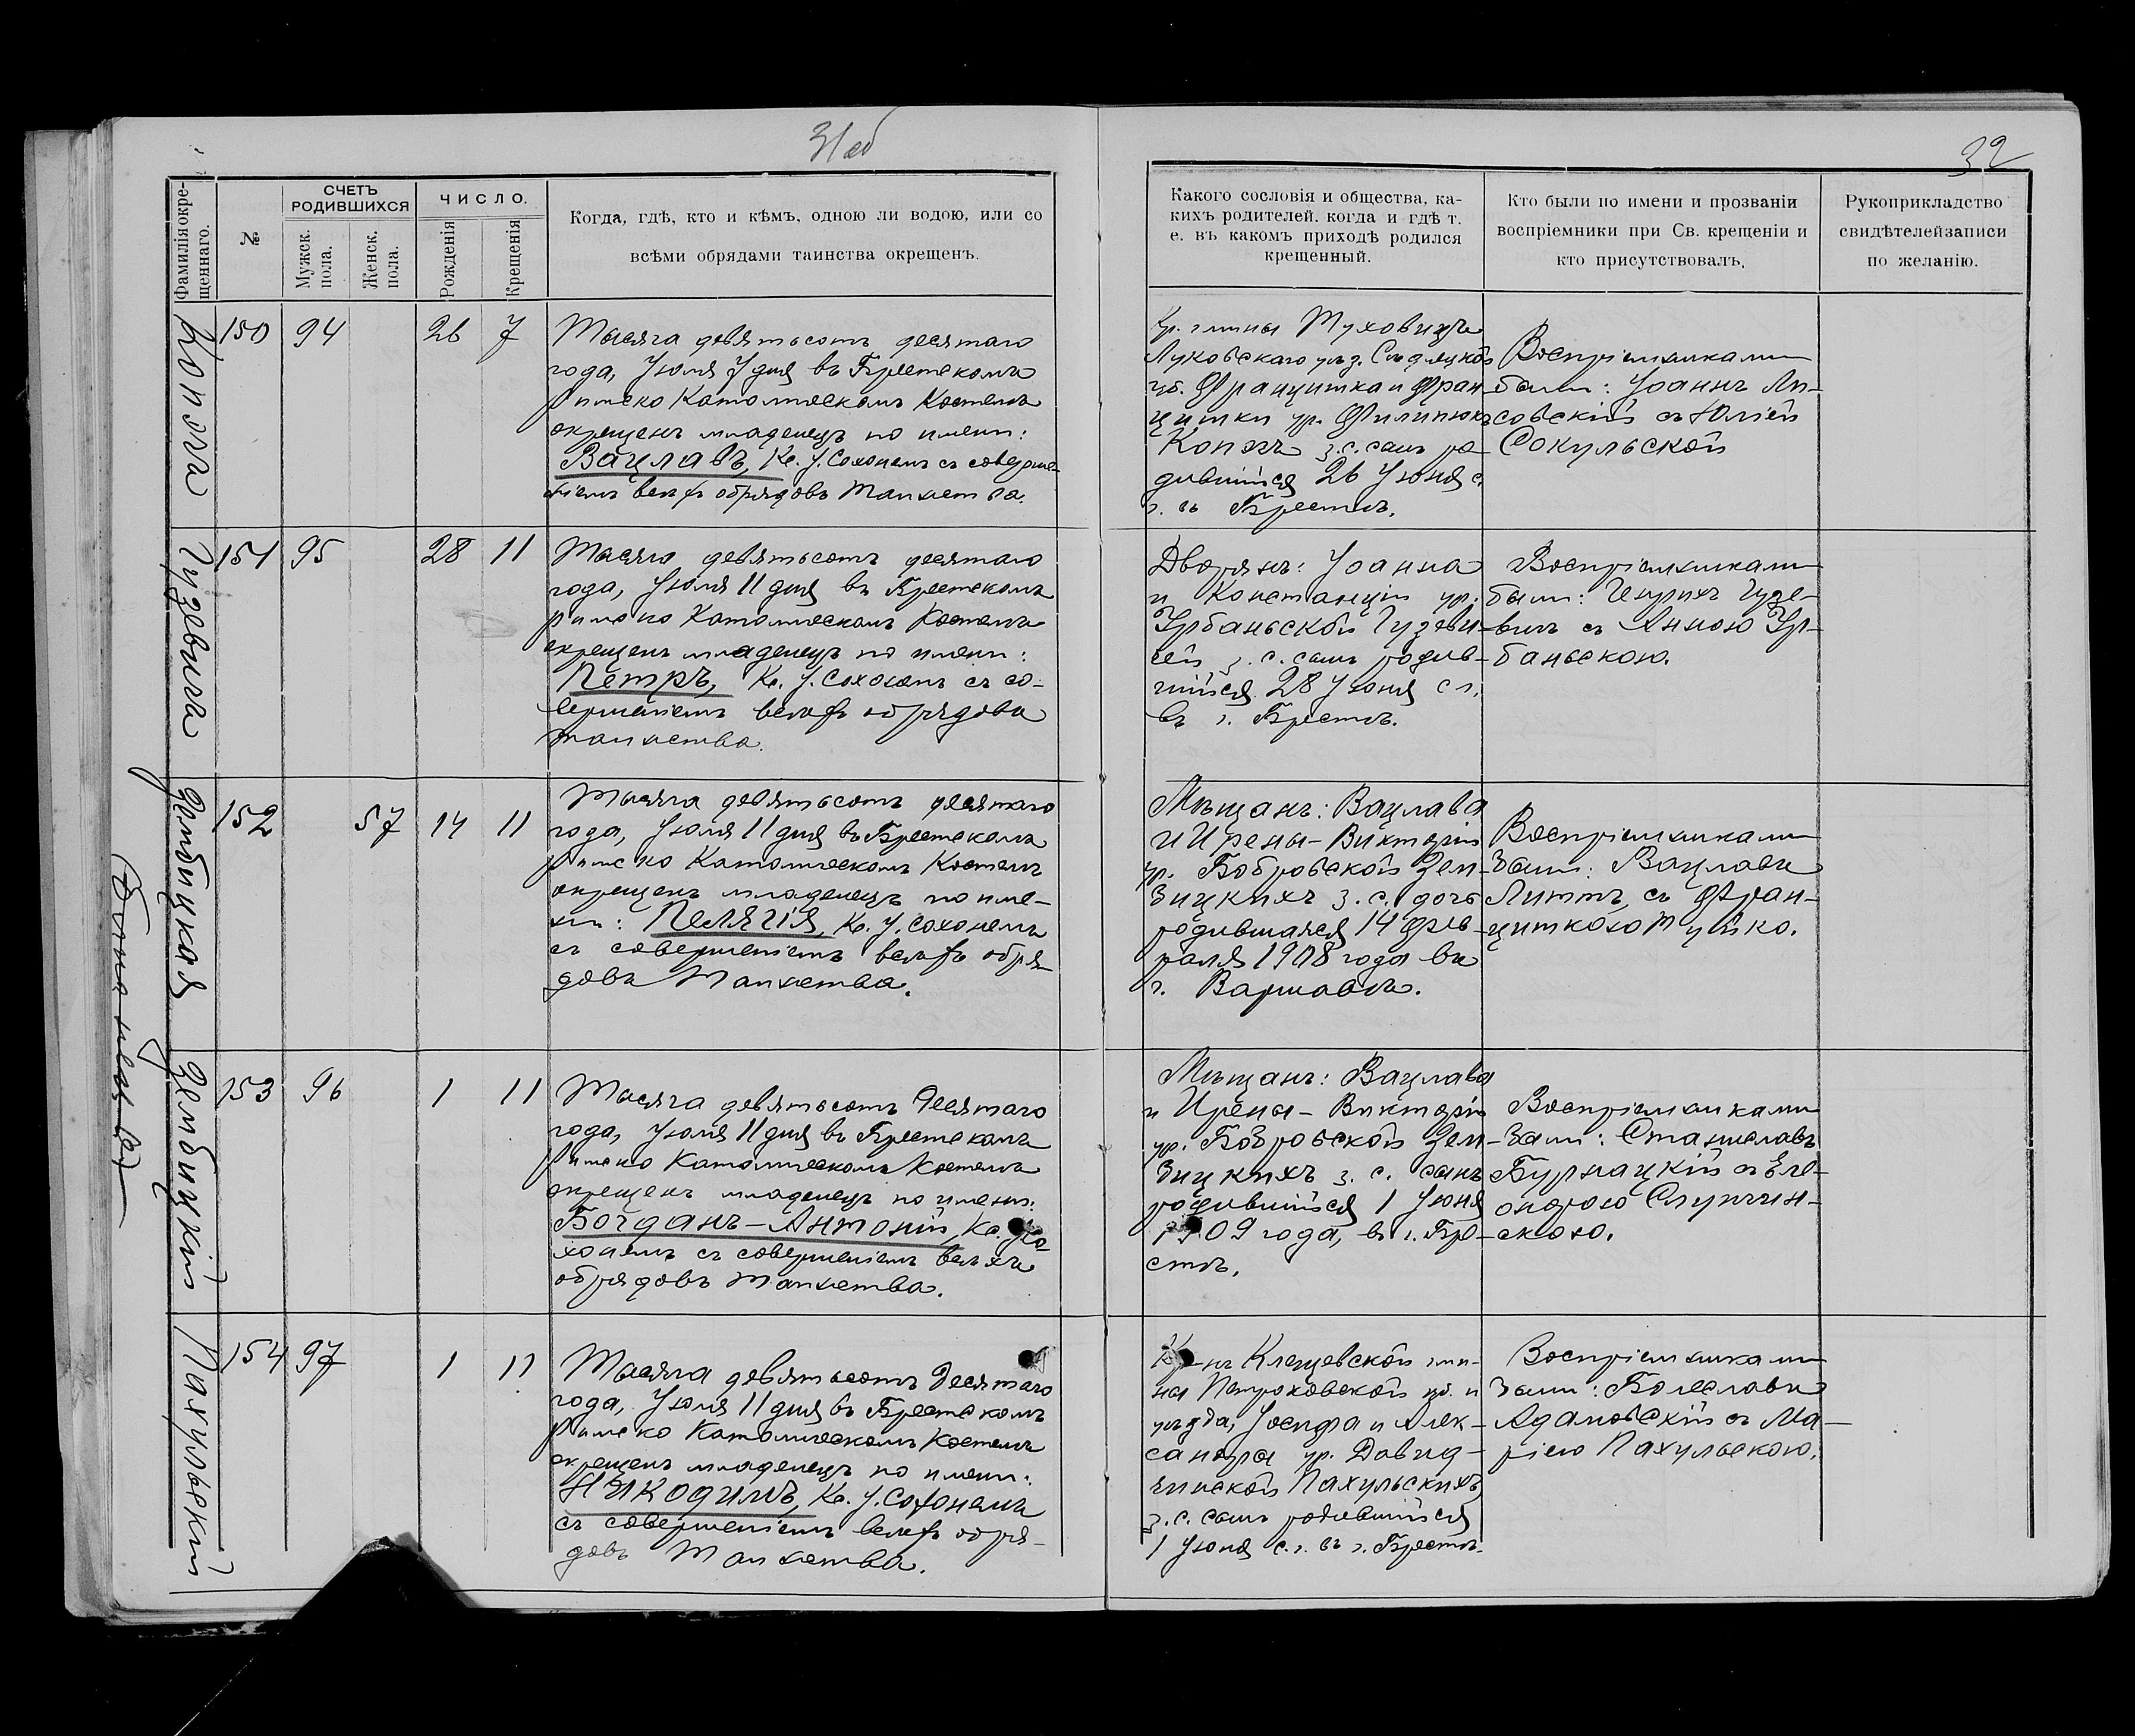 31об
32
Фамилія окре-
щеннаго.
№
СЧЕТЪ
РОДИВШИХСЯ
Мужск.
пола.
Женск.
пола.
ЧИСЛО.
Рожденія
Крещенія
Когда, гдѣ, кто и кѣмъ, одною ли водою, или со
всѣми обрядами таинства окрещенъ.
Какого сословія и общества, ка-
кихъ родителей. когда и гдѣ т.
е. въ какомъ приходѣ родился
крещенный.
Кто были по имени и прозванію
воспріемники при Св. крещеніи и
кто присутствовалъ.
Рукоприкладство
свидѣтелей записи
по желанію.
150 94 26 7
Тысяча девятьсотъ десятаго
года, Іюля 7 дня въ Брестскомъ
Римско Католическомъ Костелѣ
окрещенъ младенецъ по имени:
Вацлавъ, Кс. І. Сохонемъ съ соверше-
ніемъ всѣхъ обрядовъ Таинства.
Кр. гмины Туховичъ
Луковскаго уѣз. Сѣдлецкой
губ. Францишка и Фран-
цишки ур. Филипюкъ
з. с. сынъ ро-
дившійся 26 Іюня с.
г. въ Брестѣ.
Воспріемниками
были: Іоаннъ Ли-
совскій съ Юліей
Сокульской
Гузевичъ
151 95 28 11
Тысяча девятьсотъ десятаго
года, Іюля 11 дня въ Брестскомъ
Римско Католическомъ Костелѣ
окрещенъ младенецъ по имени:
Петръ, Кс. І. Сохонемъ съ со-
вершеніемъ всѣхъ обрядовъ
таинства.
Дворянъ: Іоанна
и Констанціи ур.
Урбаньской Гузеви-
чей з. с. сынъ родив-
шійся 28 Іюня с г.
въ г. Брестѣ.
Воспріемниками
были: Генрихъ Гузе-
вичъ съ Анною Ур-
баньскою.
Дембицкая
152 57 14 11
Тысяча девятьсотъ десятаго
года, Іюля 11 дня въ Брестскомъ
Римско Католическомъ Костелѣ
окрещенъ младенецъ по име-
ни: Пелягія, Кс. І. Сохонемъ
съ совершеніемъ всѣхъ обря-
довъ Таинства.
Мѣщанъ: Вацлава
и Ирены-Викторіи
ур. Бобровской Дем-
бицкихъ з. с. дочь
родившаяся 14 Фев-
раля 1908 года въ
г. Варшавѣ.
Воспріемниками
были: Вацлавъ
Литтъ съ Фран-
цишкою
Дембицкій
153 96 1 11
Тысяча девятьсотъ Десятаго
года, Іюля 11 дня въ Брестскомъ
Римско Католическомъ Костелѣ
окрещенъ младенецъ по имени:
Богданъ-Антоній, Кс. Со-
хонемъ съ совершеніемъ всѣхъ
обрядовъ Таинства.
Мѣщанъ: Вацлава
и Ирены-Викторіи
ур. Бобровской Дем-
бицкихъ з. с. сынъ
родившійся 1 Іюня
1909 года, въ г. Бре-
стѣ.
Воспріемниками
были: Станиславъ
Бурнацкій съ Еле-
онорою Слупчин-
скою.
Пахульскій
154 97 1 11
Тысяча девятьсотъ Десятаго
года, Іюля 11 дня въ Брестскомъ
Римско Католическомъ Костелѣ
окрещенъ младенецъ по имени:
Никодимъ, Кс. І. Сохонемъ
съ совершеніемъ всѣхъ обря-
довъ Таинства.
Кр-нъ Клещевской гми-
ны Петроковской губ. и
уѣзда, Іосифа и Алек-
сандры ур. Давид-
чинской Пахульскихъ,
з. с. сынъ родившійся
1 Іюня с. г. въ г. Брестѣ.
Воспріемниками
были: Болеславъ
Адамовскій съ Ма-
ріею Пахульскою.